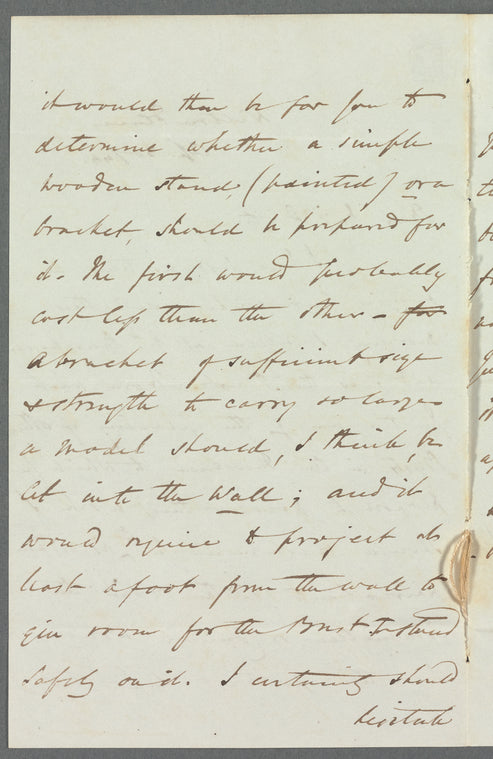 it would then be for you to
determine whether a simple
wooden stand, (painted) or a
bracket, should be prepared for
it. The first would probably
cost less than the other - for
a bracket of sufficient size
& strength to carry so large
a model should, I think, be
let into the wall; and it
would require to project at
least a foot from the wall to
give room for the Bust to stand
safely on it. I certainly should
hesitate